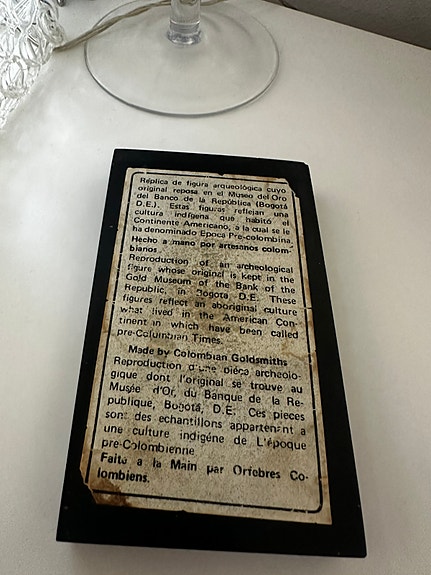 Réplica de figura arqueológica cuyo
original reposa en el Museo del Oro
del Banco de la República (Bogotá
D.E.). Estas figuras reflejan una
cultura indígena que habitó el
Continente Americano, a la cual se le
ha denominado Epoca Pre-colombina.
Hecho a mano por artesanos colom-
bianos
Reproduction of an archeological
figure whose original is kept in the
Gold Museum of the Bank of the
Republic, in Bogota D.E. These
figures reflect an aboriginal culture
what lived in the American Con-
tinent in which have been called
pre-Columbian Times.
Made by Colombian Goldsmiths
Reproduction d'une pièce archeolo-
gique dont l'original se trouve au
Musée d'Or, du Banque de la Re-
publique, Bogotá, D.E. Ces pieces
sont des echantillons appartenant a
une culture indigéne de L'époque
pre-Colombienne
Faite a la Main par Orfebres Co-
lombiens.